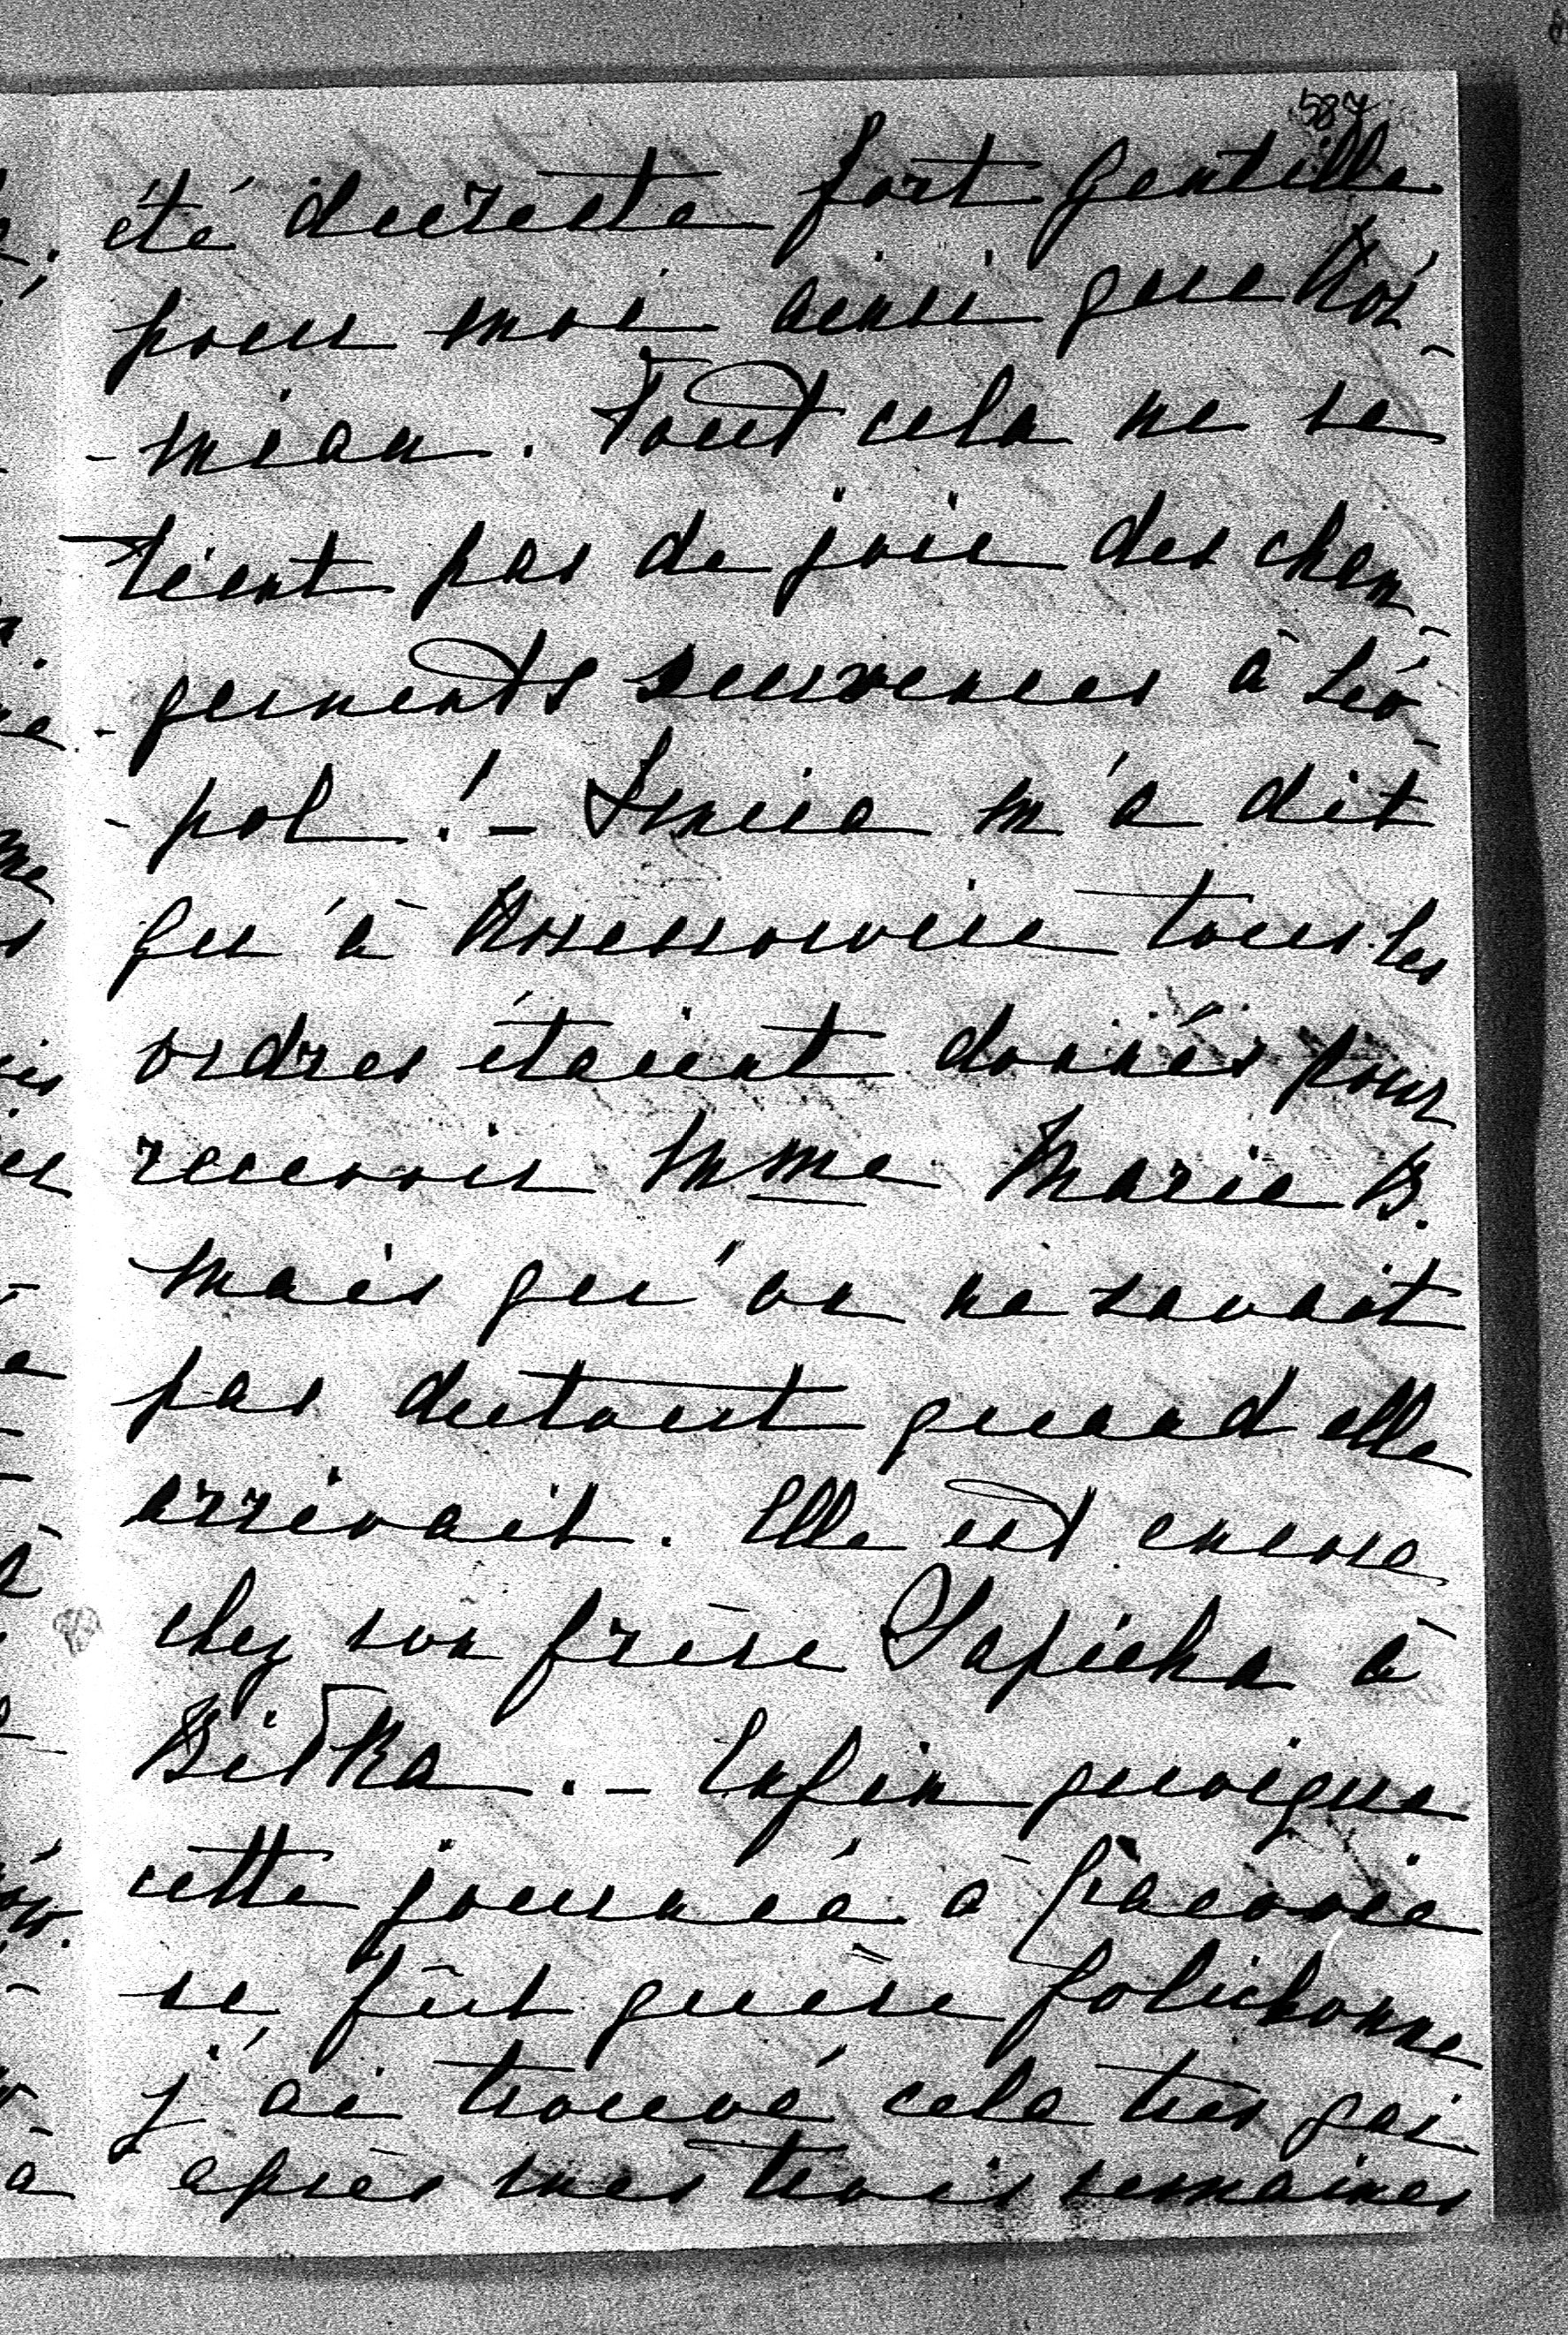 587
été du reste fort gentille
pour moi ainsi que Koź-
-mian. Tout cela ne se
tient pas de joie des chan-
-gements survenus à Léo-
-pol! - m'a dit
qu'à tous les
ordres étaient donnés pour
recevoir Mme Marie B.
mais qu'on ne savait
pas du tout quand elle
arrivait. Elle est encore
chez son frère Sapieha à
Bilka. - Enfin quoique
cette journée à Cracovie
ne fût guère folichonne
j'ai trouvé cela très gai
après mes trois semaines